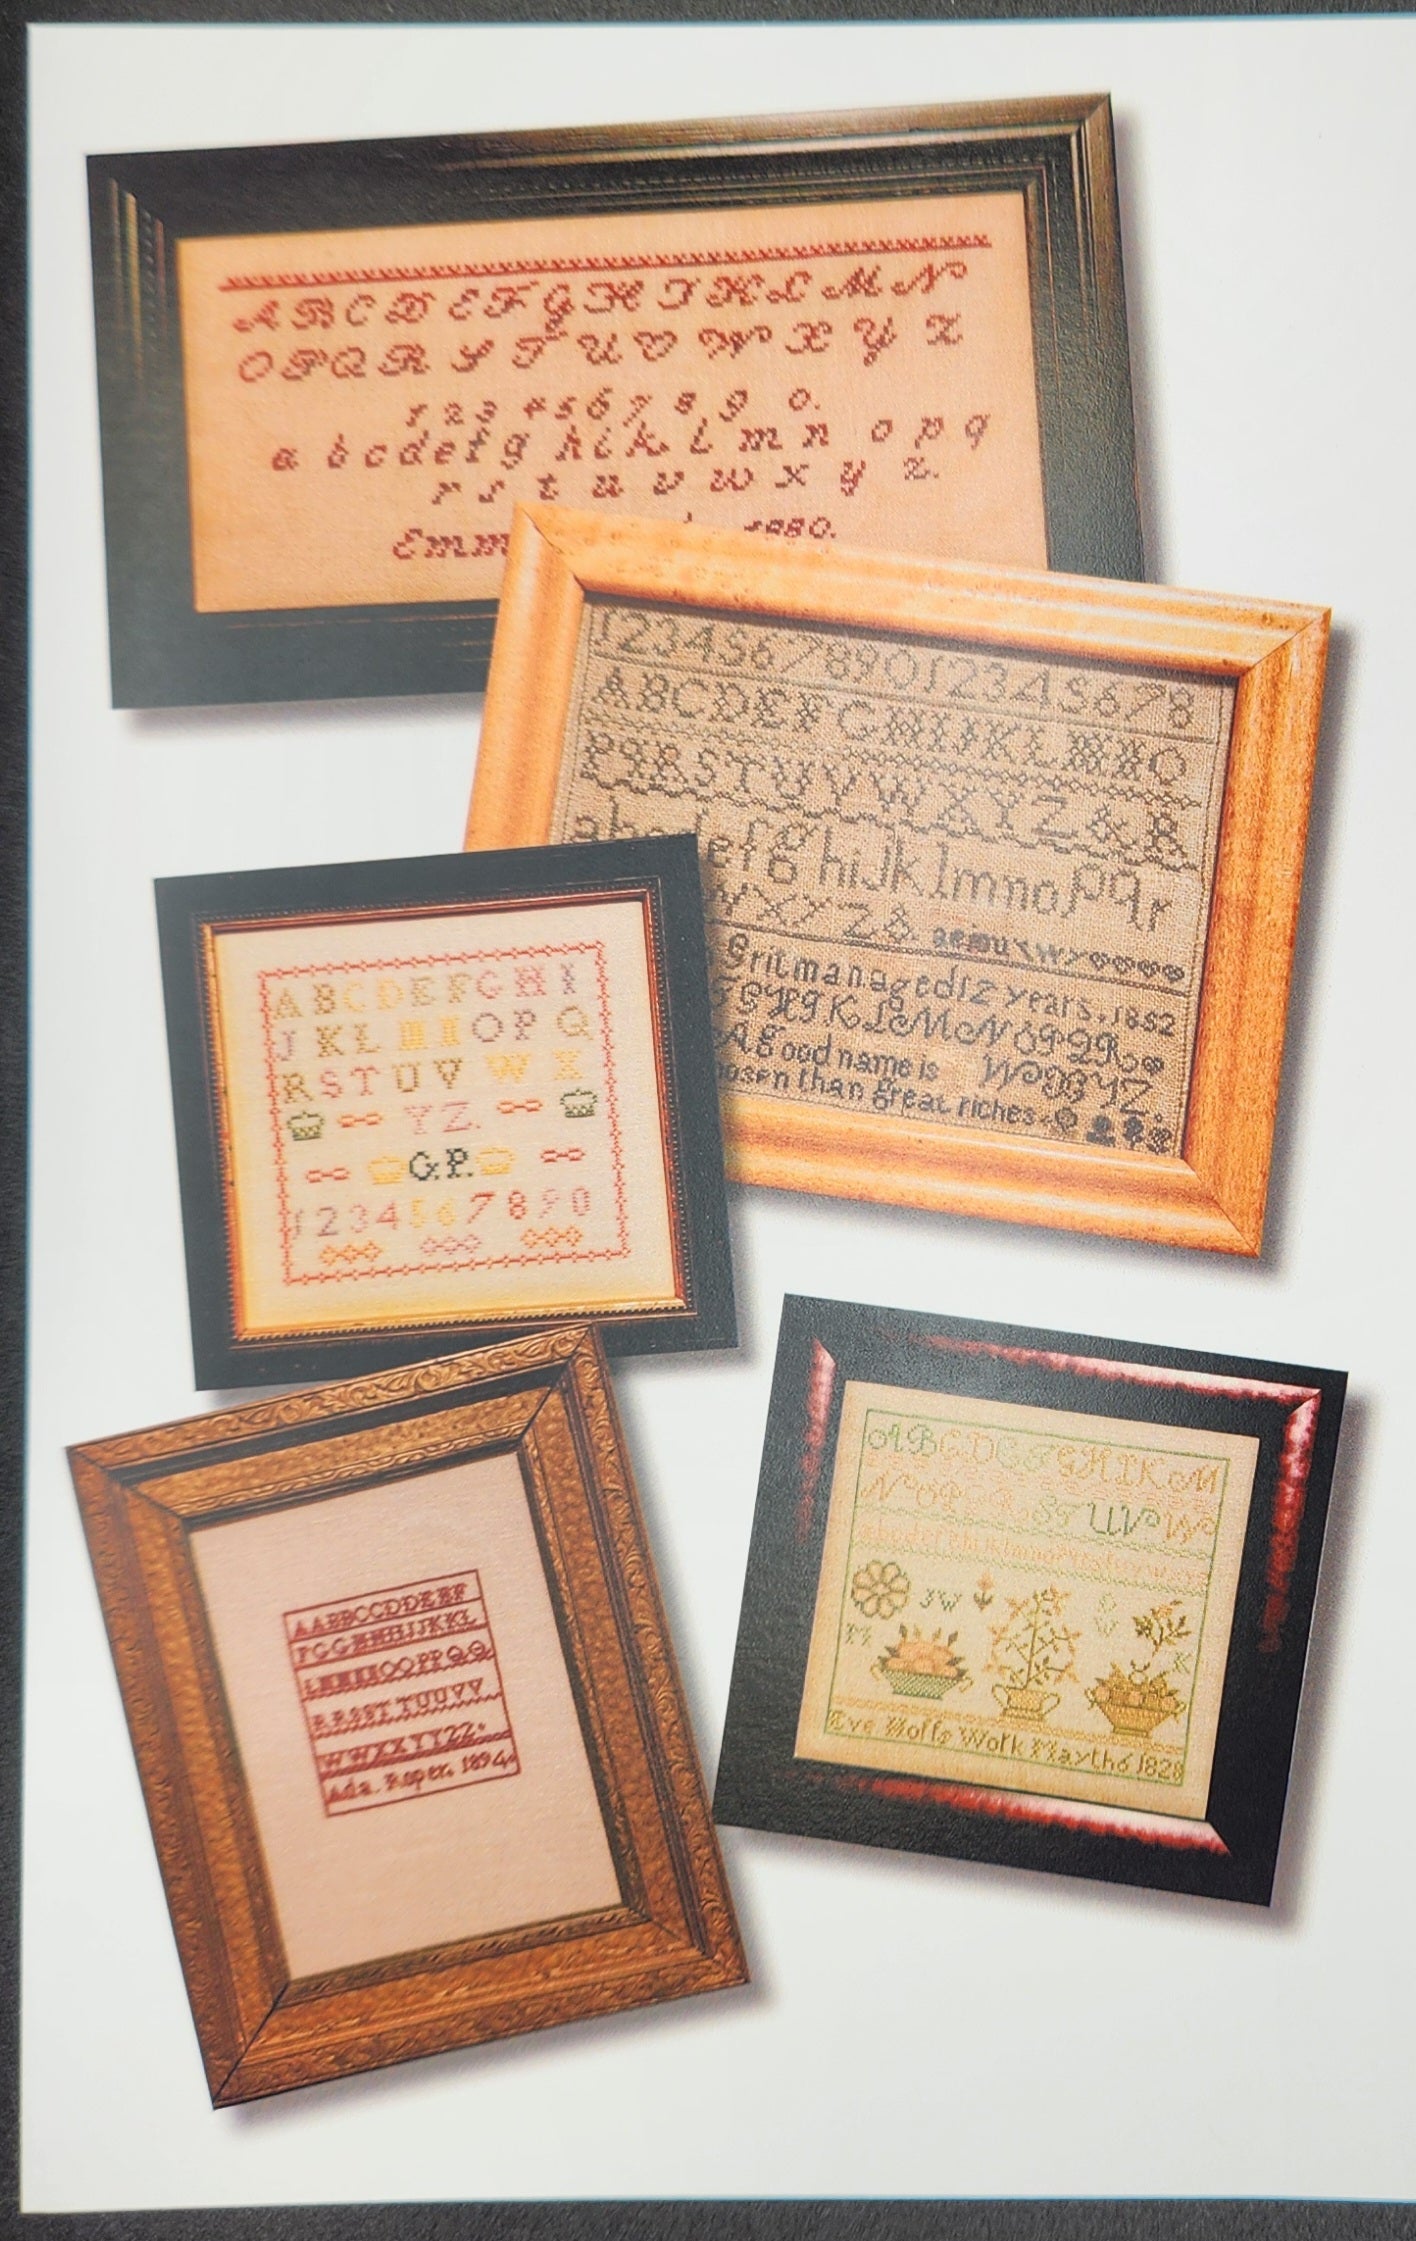 A B C D E F G H I K L M N
O P Q R S T U V W X Y Z
1 2 3 4 5 6 7 8 9 0.
a b c d e f g h i k l m n o p q
r s t u v w x y z.
1880.
123456789012345678
ABCDEFGHIJKLMNO
PQRSTUVWXYZ&
efghijklmnopqr
WXYZ&
aged 12 years, 1852
GHIJKLMNOPQR
A good name is
than great riches.
A B C D E F G H I
J K L M N O P Q
R S T U V W X
Y Z.
G.P.
1 2 3 4 5 6 7 8 9 0
AABBCCDDEEFF
FGGHHIIJJKKL
LMMNNOOPPQQ
RRSSTTUUVV
WWXXYYZZ.
Ada. Roper. 1894.
ABCDEFGHIKM
NOPQRSTUVW
JW
K
Work May th6 1828